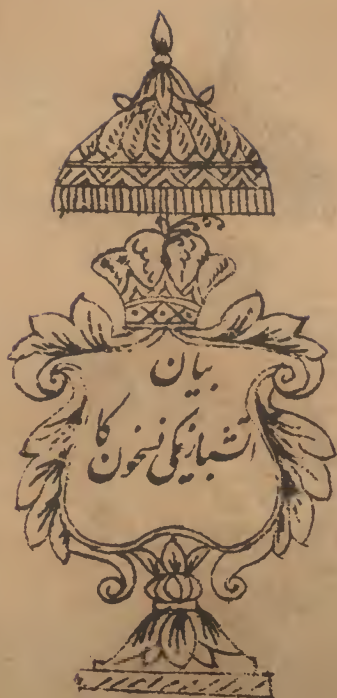 بیان
آتشبازیکی نسخون کا